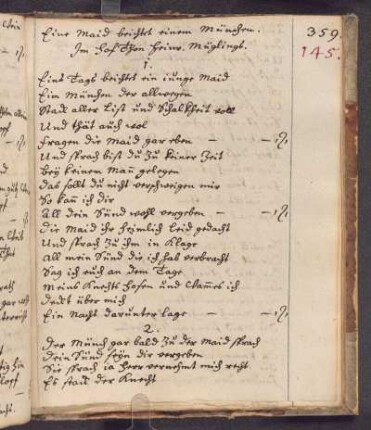 359.
145.
Eine Maid beichtet einem München.
Im Hof Thon Heinr. Müglings.
1.
Eins Tags beichtet ein iunge Maid
Ein München der allwegen
Stack aller List und Schalkheit voll
Und thät auch wol
fragen die Maid gar eben
Und sprach bist du zu keiner Zeit
Bey keinem Mann gelegen
das solt du nicht verschweigen mir
So kan ich dir
All dein Sünd wohl vergeben
die Maid ihr heimlich Leid gedacht
Und sprach zu ihm in Klage
All mein Sünd die ich hab verbracht
Sag ich euch an dem Tage
Meins Knechts Hosen und Wammes ich
deckt über mich
Ein Nacht darunter lage
2.
Der Münch gar bald zu der Maid sprach
Dein Sünd seyn dir vergeben
Sie sprach ia Herr vernehmt mich recht
Es stack der Knecht